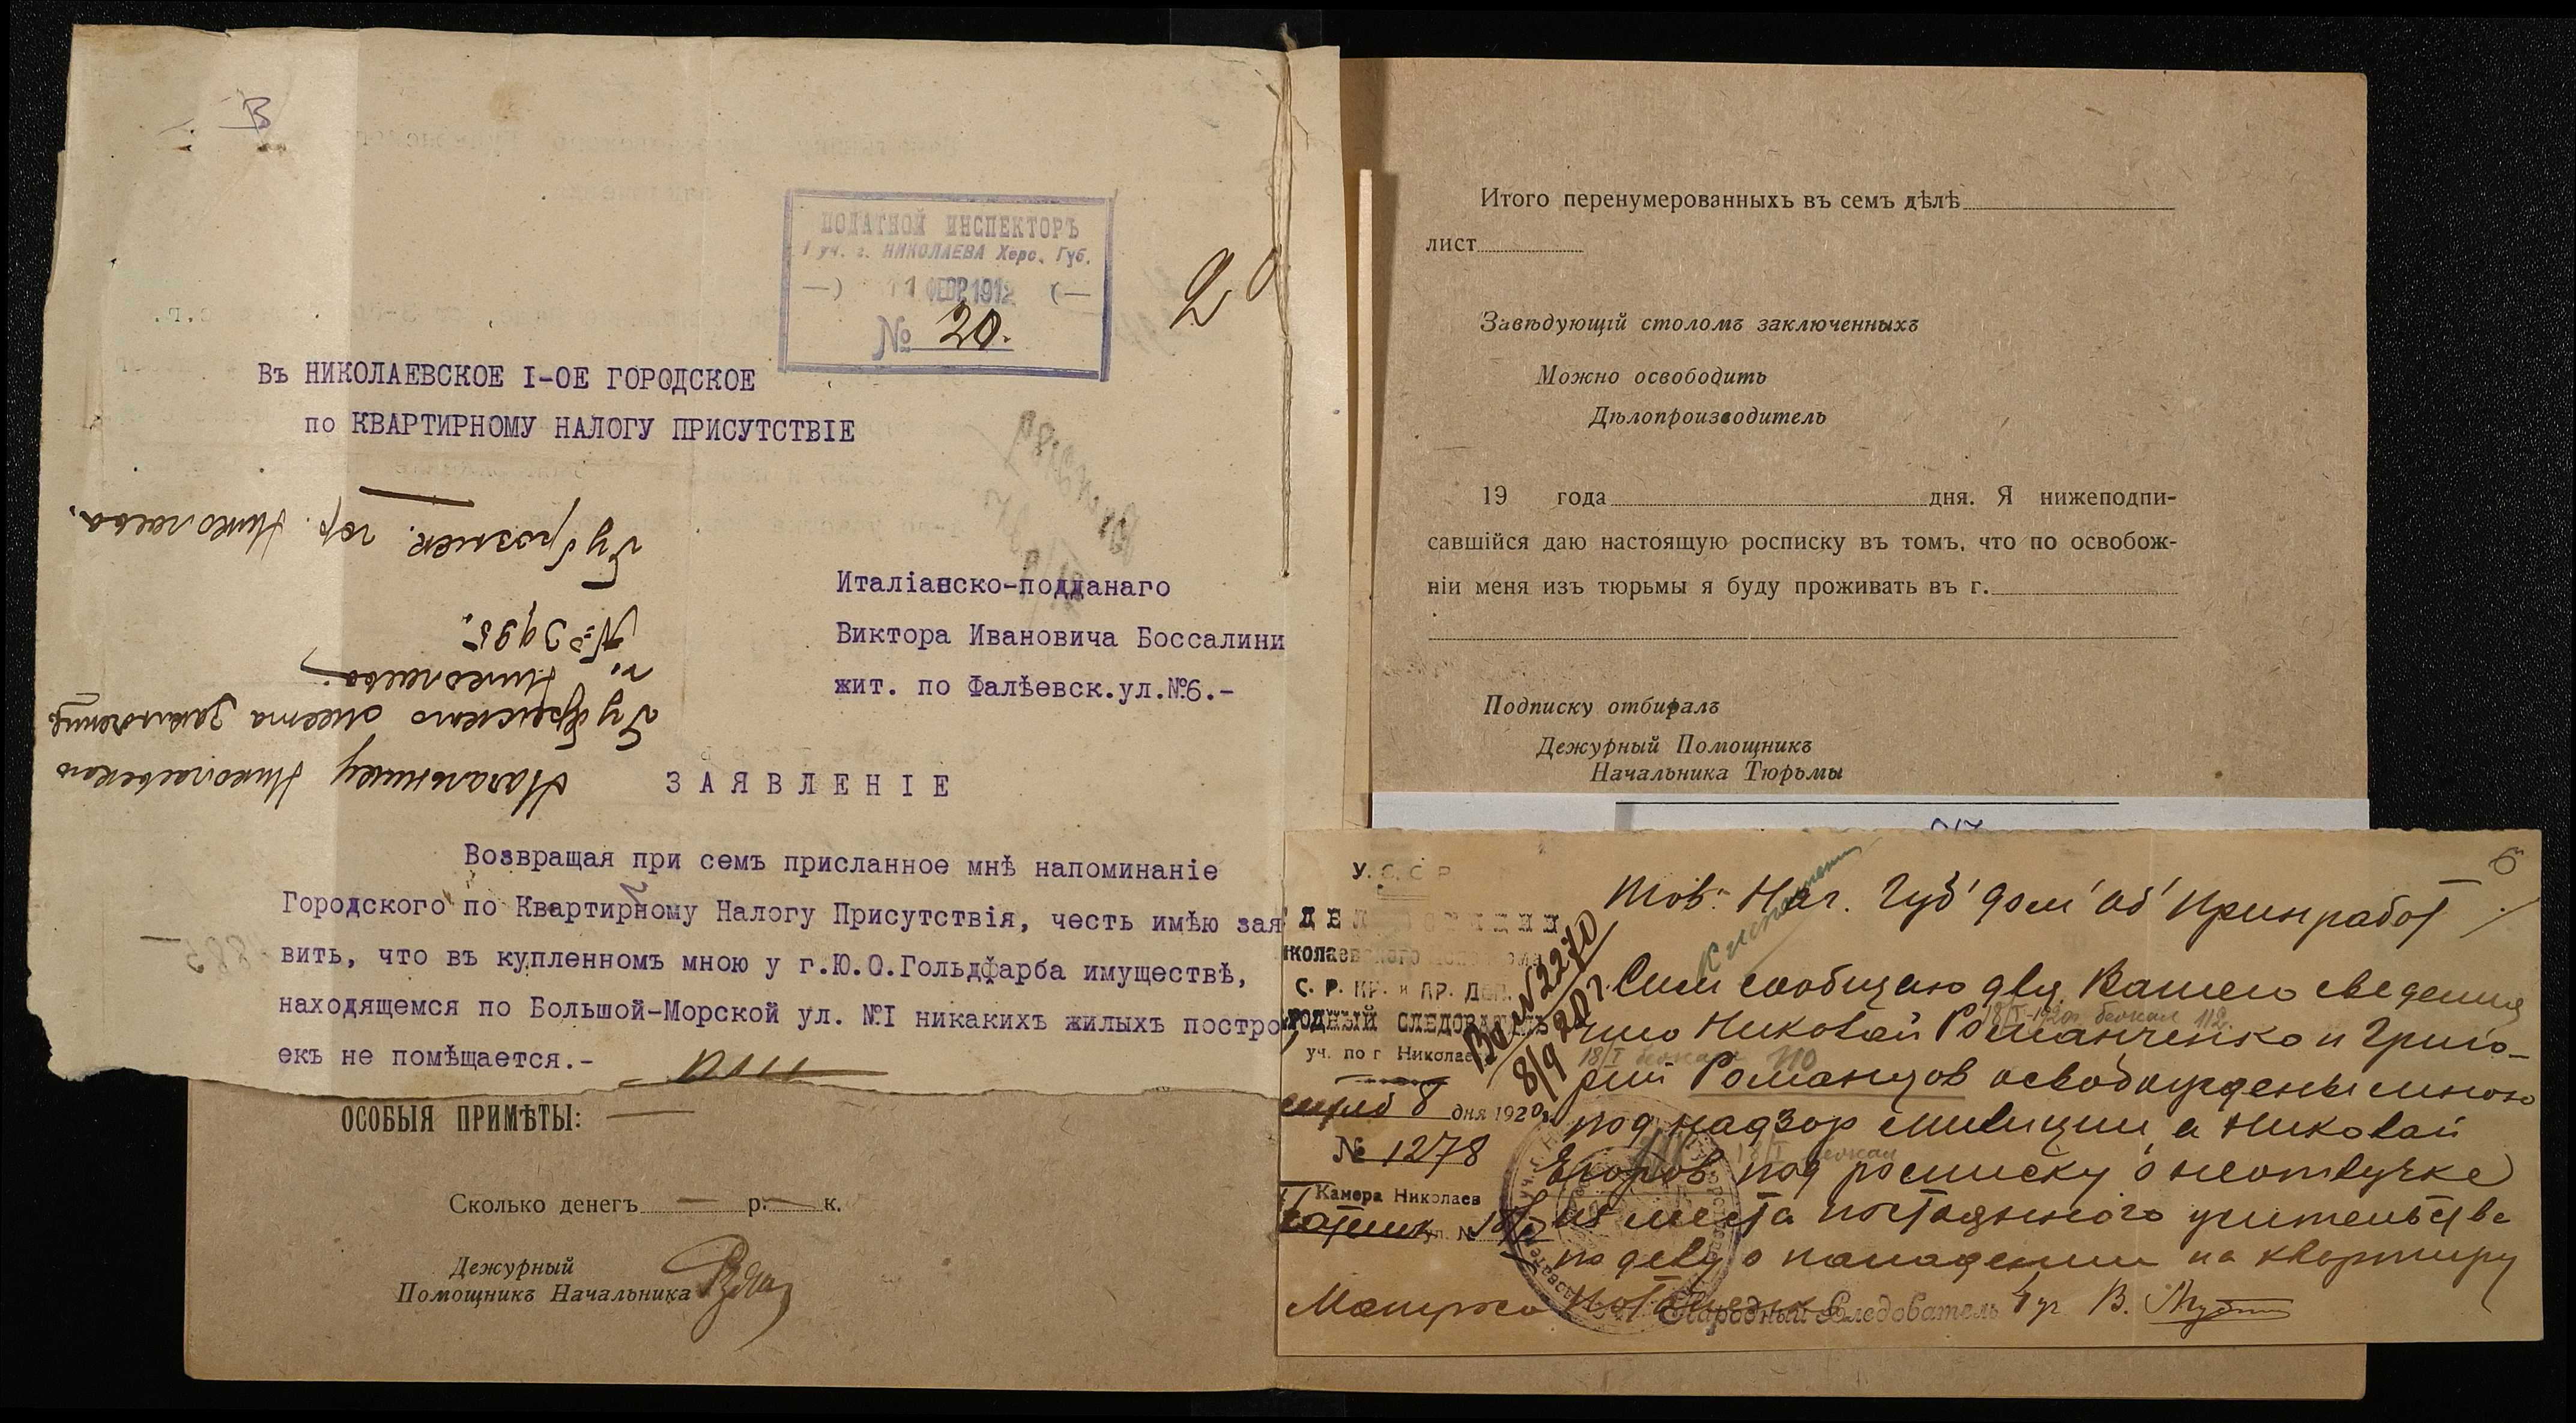 В
ПОДАТНОЙ ИНСПЕКТОРЪ
I уч. г. НИКОЛАЕВА Херс. Губ.
11 ФЕВР. 1912
№ 20.
Въ НИКОЛАЕВСКОЕ I-ОЕ ГОРОДСКОЕ
по КВАРТИРНОМУ НАЛОГУ ПРИСУТСТВІЕ
Италіанско-подданаго
Виктора Ивановича Боссалини
жит. по Фалѣевск.ул.№6.-
ЗАЯВЛЕНІЕ
Возвращая при семъ присланное мнѣ напоминаніе
Городского по Квартирному Налогу Присутствія, честь имѣю зая
вить, что въ купленномъ мною у г.Ю.О.Гольдфарба имуществѣ,
находящемся по Большой-Морской ул. №I никакихъ жилыхъ постро
екъ не помѣщается.-
Начальнику Николаевского
Губернского места Заключения
г. Николаева.
№ 3495.
гор. Николаева.
ОСОБЫЯ ПРИМѢТЫ: —
Сколько денегъ — р. — к.
Дежурный
Помощникъ Начальника
Итого перенумерованныхъ въ семъ дѣлѣ
лист
Завѣдующій столомъ заключенныхъ
Можно освободить
Дѣлопроизводитель
19 года дня. Я нижеподпи-
савшійся даю настоящую росписку въ томъ, что по освобож-
ніи меня изъ тюрьмы я буду проживать въ г.
Подписку отбиралъ
Дежурный Помощникъ
Начальника Тюрьмы
У. С. С. Р.
С. Р. КР. и АР. ДЕП.
РОДНЫЙ СЛЕДОВАТЕЛЬ
уч. по г. Николаеву
8 дня 1920 г.
№ 1278
Камера Николаев
ул. №
Вх. № 2270
8/9 20 г.
6
Тов. Нач. Губ. дом. об. Принработ
Сим сообщаю для Вашего сведения
что Николай Романченко и Григо-
рий Романцов освобождены мною
под надзор милиции, а Николай
Егоров под росписку о неотлучке
из места постоянного жительства
по делу о нападении на квартиру
Народный Следователь